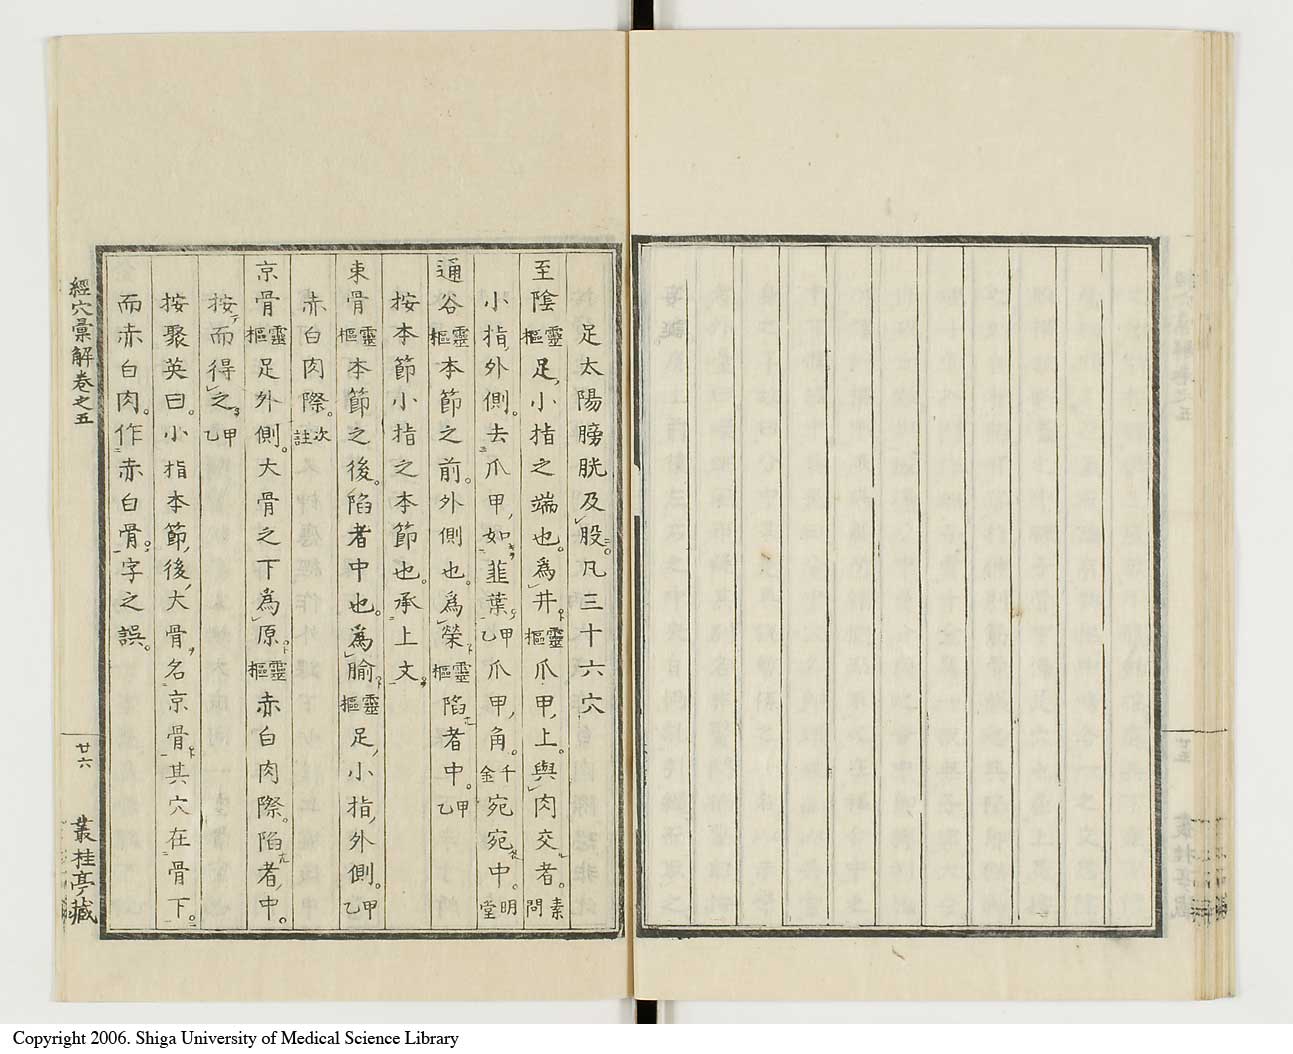 足太陽膀胱及股凡三十六穴
至陰靈樞足小指之端也。爲井靈樞爪甲上。與肉交者。素問
小指外側。去爪甲如韮葉。甲乙爪甲角。千金宛宛中。明堂
通谷靈樞本節之前。外側也。爲滎靈樞陷者中。甲乙
按本節小指之本節也。承上文。
束骨靈樞本節之後。陷者中也。爲腧靈樞足小指外側。甲乙
赤白肉際。次註
京骨靈樞足外側。大骨之下爲原靈樞赤白肉際。陷者中。
按而得之甲乙
按聚英曰。小指本節後大骨名京骨其穴在骨下。
而赤白肉。作赤白骨。字之誤。
經穴彙解卷之五
廿六
叢桂亭藏
Copyright 2006. Shiga University of Medical Science Library